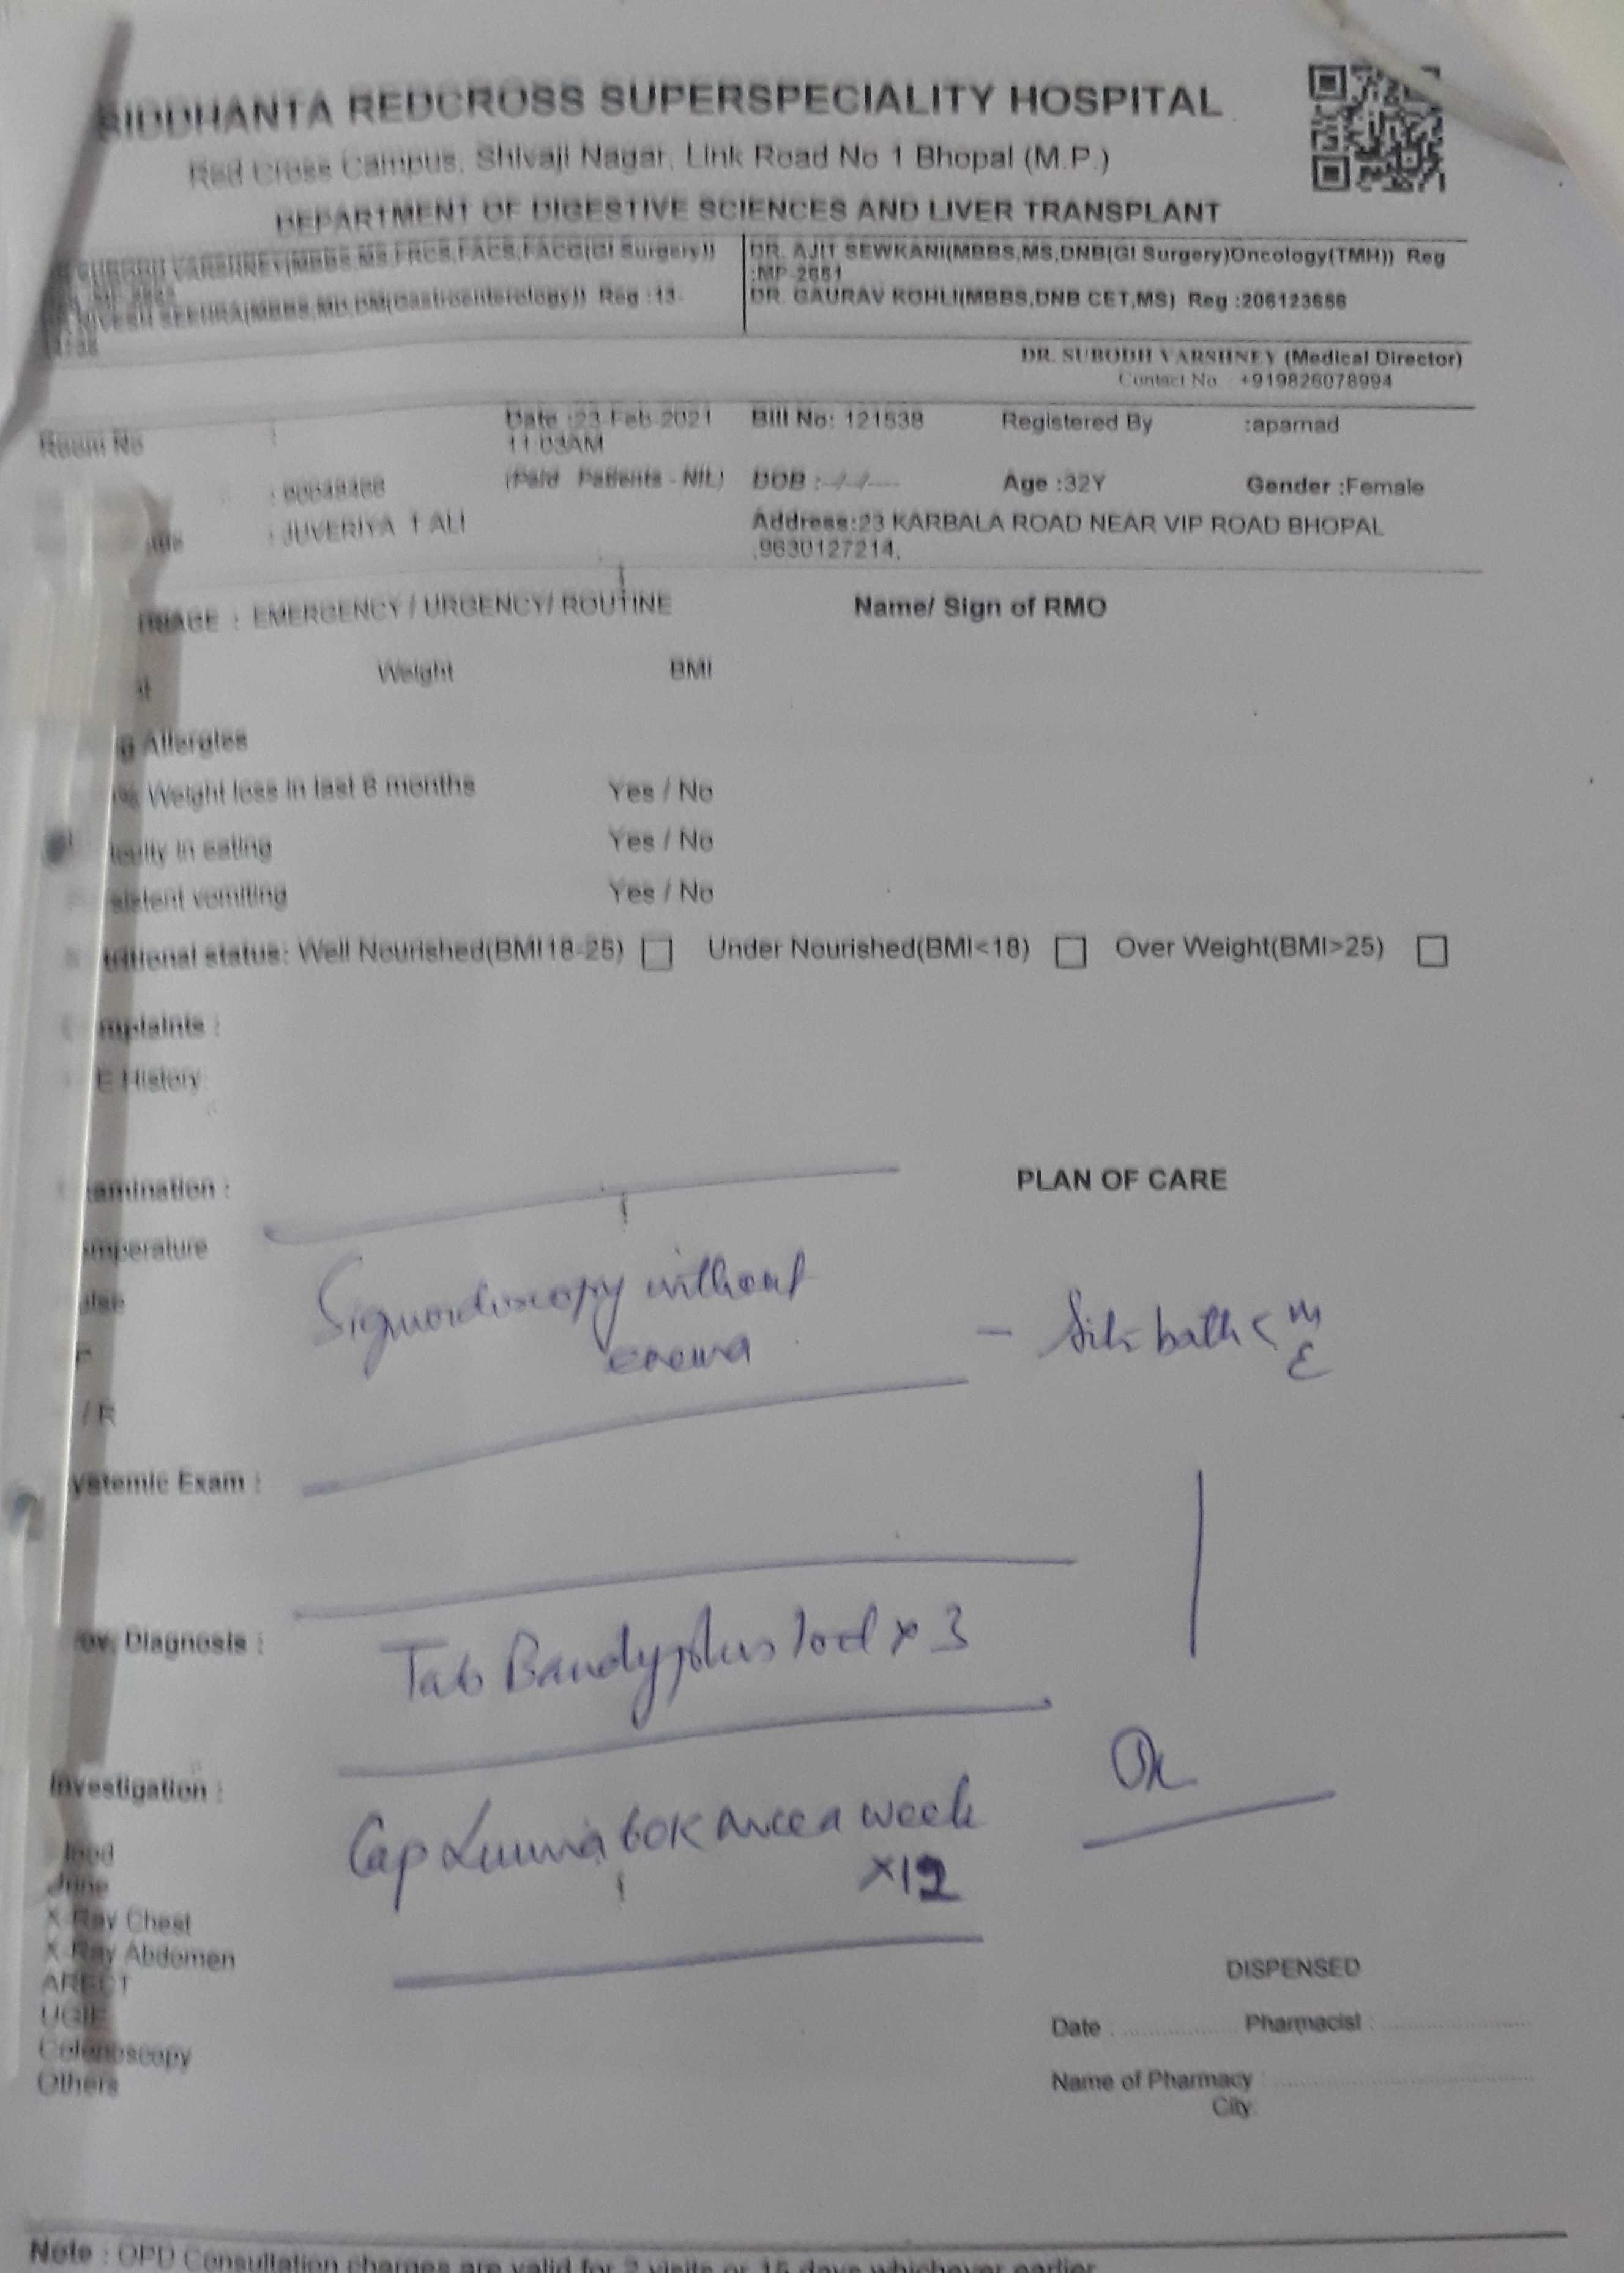 SIDDHANTA REDCROSS SUPERSPECIALITY HOSPITAL
Red Cross Campus, Shivaji Nagar, Link Road No 1 Bhopal (M.P.)
DEPARTMENT OF DIGESTIVE SCIENCES AND LIVER TRANSPLANT
SUBODH VARSHNEY(MBBS,MS,FRCS,FACS,FACG(GI Surgery))
SEEHRA(MBBS,MD,DM(Gastroenterology)) Reg :13-
DR. AJIT SEWKANI(MBBS,MS,DNB(GI Surgery)Oncology(TMH)) Reg
:MP-2651
DR. GAURAV KOHLI(MBBS,DNB CET,MS) Reg :206123656
DR. SUBODH VARSHNEY (Medical Director)
Contact No +919826078994
Room No : Date :23-Feb-2021 Bill No: 121538 Registered By :aparnad
11:03AM
(Paid Patients - NIL) DOB :-/-/---- Age :32Y Gender :Female
: JUVERIYA ALI Address:23 KARBALA ROAD NEAR VIP ROAD BHOPAL
,9630127214,
TRIAGE : EMERGENCY / URGENCY/ ROUTINE Name/ Sign of RMO
Weight BMI
Allergies
% Weight loss in last 6 months Yes / No
in eating Yes / No
vomiting Yes / No
status: Well Nourished(BMI 18-25) Under Nourished(BMI<18) Over Weight(BMI>25)
mplaints :
History
amination : PLAN OF CARE
mperature
Sigmoidoscopy without
enema
- Sitz bath < M
E
/ R
ystemic Exam :
ov. Diagnosis :
Tab Bandyplus 1od x 3
Investigation :
Cap Lumia 60K once a week
x12
X-Ray Chest
X-Ray Abdomen
UGIE
Colonoscopy
Others
DISPENSED
Date : Pharmacist :
Name of Pharmacy :
City
Note : OPD Consultation charges are valid for 2 visits or 15 days whichever earlier